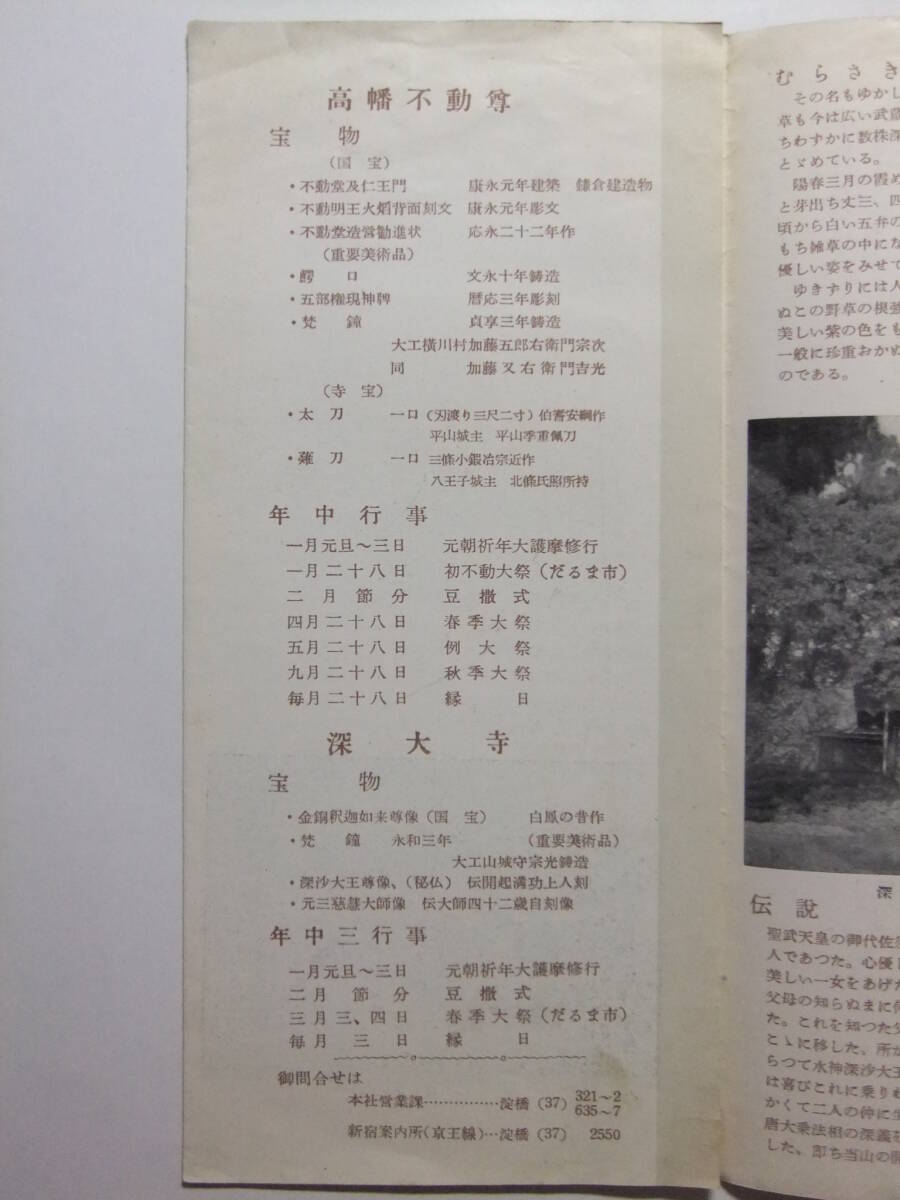 高幡不動尊
宝物
(国宝)
・不動堂及仁王門 康永元年建築 鎌倉建造物
・不動明王火焔背面刻文 康永元年彫文
・不動堂造営勧進状 応永二十二年作
(重要美術品)
・鰐口 文永十年鋳造
・五部権現神牌 暦応三年彫刻
・梵鐘 貞享三年鋳造
大工横川村加藤五郎右衛門宗次
同 加藤又右衛門吉光
(寺宝)
・太刀 一口(刃渡り三尺二寸)伯耆安綱作
平山城主 平山季重佩刀
・薙刀 一口 三條小鍛冶宗近作
八王子城主 北條氏照所持
年中行事
一月元旦〜三日 元朝祈年大護摩修行
一月二十八日 初不動大祭(だるま市)
二月節分 豆撒式
四月二十八日 春季大祭
五月二十八日 例大祭
九月二十八日 秋季大祭
毎月二十八日 縁日
深大寺
宝物
・金銅釈迦如来尊像(国宝) 白鳳の昔作
・梵鐘 永和三年 (重要美術品)
大工山城守宗光鋳造
・深沙大王尊像、(秘仏) 伝開起満功上人刻
・元三慈慧大師像 伝大師四十二歳自刻像
年中三行事
一月元旦〜三日 元朝祈年大護摩修行
二月節分 豆撒式
三月三、四日 春季大祭(だるま市)
毎月三日 縁日
御問合せは
本社営業課……………淀橋(37) 321〜2
635〜7
新宿案内所(京王線)…淀橋(37) 2550
むらさき
その名もゆかし
草も今は広い武蔵
ちわずかに数株深
とゞめている。
陽春三月の霞め
と芽出ち丈三、四
頃から白い五弁の
もち雑草の中にな
優しい姿をみせて
ゆきずりには人
ぬこの野草の根強
美しい紫の色をも
一般に珍重おかぬ
のである。
深
伝説
聖武天皇の御代佐
人であつた。心優し
美しい一女をあげた
父母の知らぬまに
た。これを知つた父
こゝに移した。所が
らつて水神深沙大王
は喜びこれに乗りぬ
かくて二人の仲に生
唐大乗法相の深義を
した。即ち当山の開